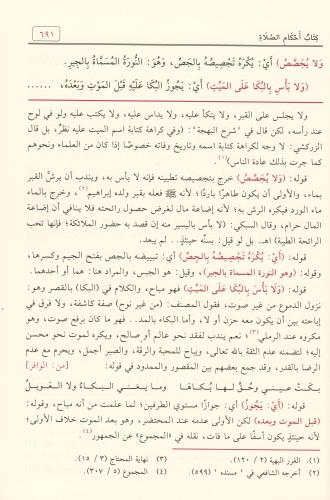 كتاب أحكام الصلاة
٦٩١
ولا يُجَصَّصُ) أيْ: يُكْرَهُ تَجْصِيصُهُ بِالجِصِّ، وَهُوَ: النُّورَةُ المُسَمَّاةُ بِالجِيرِ.
(وَلا بَأْسَ بِالْبُكَا عَلَى المَيِّتِ) أَيْ: يَجُوزُ البُكَا عَلَيْهِ قَبْلَ المَوْتِ وَبَعْدَهُ، ......
ولا يجلس على القبر، ولا يتكأ عليه، ولا يداس عليه، ولا يكتب عليه ولو في لوح
عند رأسه، لكن قال في «شرح البهجة»: (وفي كراهة كتابة اسم الميت عليه نظر، بل قال
الزركشي: لا وجه لكراهة كتابة اسمه وتاريخ وفاته خصوصًا إذا كان من العلماء ونحوهم
كما جرت بذلك عادة الناس)(١).
قوله: (وَلا يُجَصَّصُ) خرج بتجصيصه تطيينه فإنه لا بأس به، ويندب أن يرش القبر
بماء، والأولى أن يكون طاهرًا باردًا؛ لأنه ﷺ فعله بقبر ولده إبراهيم(٢)، وخرج بالماء
ماء الورد فيكره الرش به؛ لأنه إضاعة مال لغرض حصول رائحته فلا ينافي أن إضاعة
المال حرام، وقال السبكي: (لا بأس باليسير منه إن قصد به حضور الملائكة؛ فإنها تحب
الرائحة الطيبة) اهـ. بل لو قيل: يسنُّه حينئذٍ.. لم يبعد.
قوله: (أَيْ: يُكْرَهُ تَجْصِيصُهُ بِالجِصِّ) أي: تبييضه بالجص بفتح الجيم وكسرها،
وقوله: (وهو النورة المسماة بالجير)، وقيل: هو الجبس، والمراد هنا: هما أو أحدهما.
قوله: (وَلَا بَأْسَ بِالْبُكَا عَلَى المَيِّتِ) فهو مباح، والكلام في (البكا) بالقصر وهو:
نزول الدموع من غير صوت، فقول المصنف: (من غير نوح) صفة كاشفة، ولا فرق في
إباحته بين أن يكون معه حزن أو لا، وأما البكاء بالمد.. فهو ما كان برفع صوت، وهو
مكروه عند الرملي(٣)؛ نعم يندب لفقد نحو عالم أو صالح، ويكره لموت نحو محسن
إليه؛ لتضمنه عدم الثقة بالله تعالى، ويباح للمحبة والرقة، والصبر أجمل، ويحرم مع عدم
الرضا بالقدر، وقد جمع بعضهم بين المقصور والممدود في قوله:
[من: الوافر]
بكَتْ عينِي وحُقَّ لها بُكاها وما يغنِي البكاءُ ولا العويلُ
قوله: (أَيْ: يَجُوزُ) أي: جوازًا مستوي الطرفين؛ لما علمت من أنه مباح، وقوله:
(قبل الموت وبعده) لكن الأولى عدمه عند المحتضر، وهو بعد الموت خلاف الأولى؛
لأنه حينئذٍ يكون أسفًا على ما فات، نقله في «المجموع» عن الجمهور(٤).
(١). الغرر البهية (٢ / ١٢٠). (٣) نهاية المحتاج (٣ / ١٥).
(٢) أخرجه الشافعي في «مسنده» (٥٩٩). (٤) المجموع (٥ / ٣٠٧).